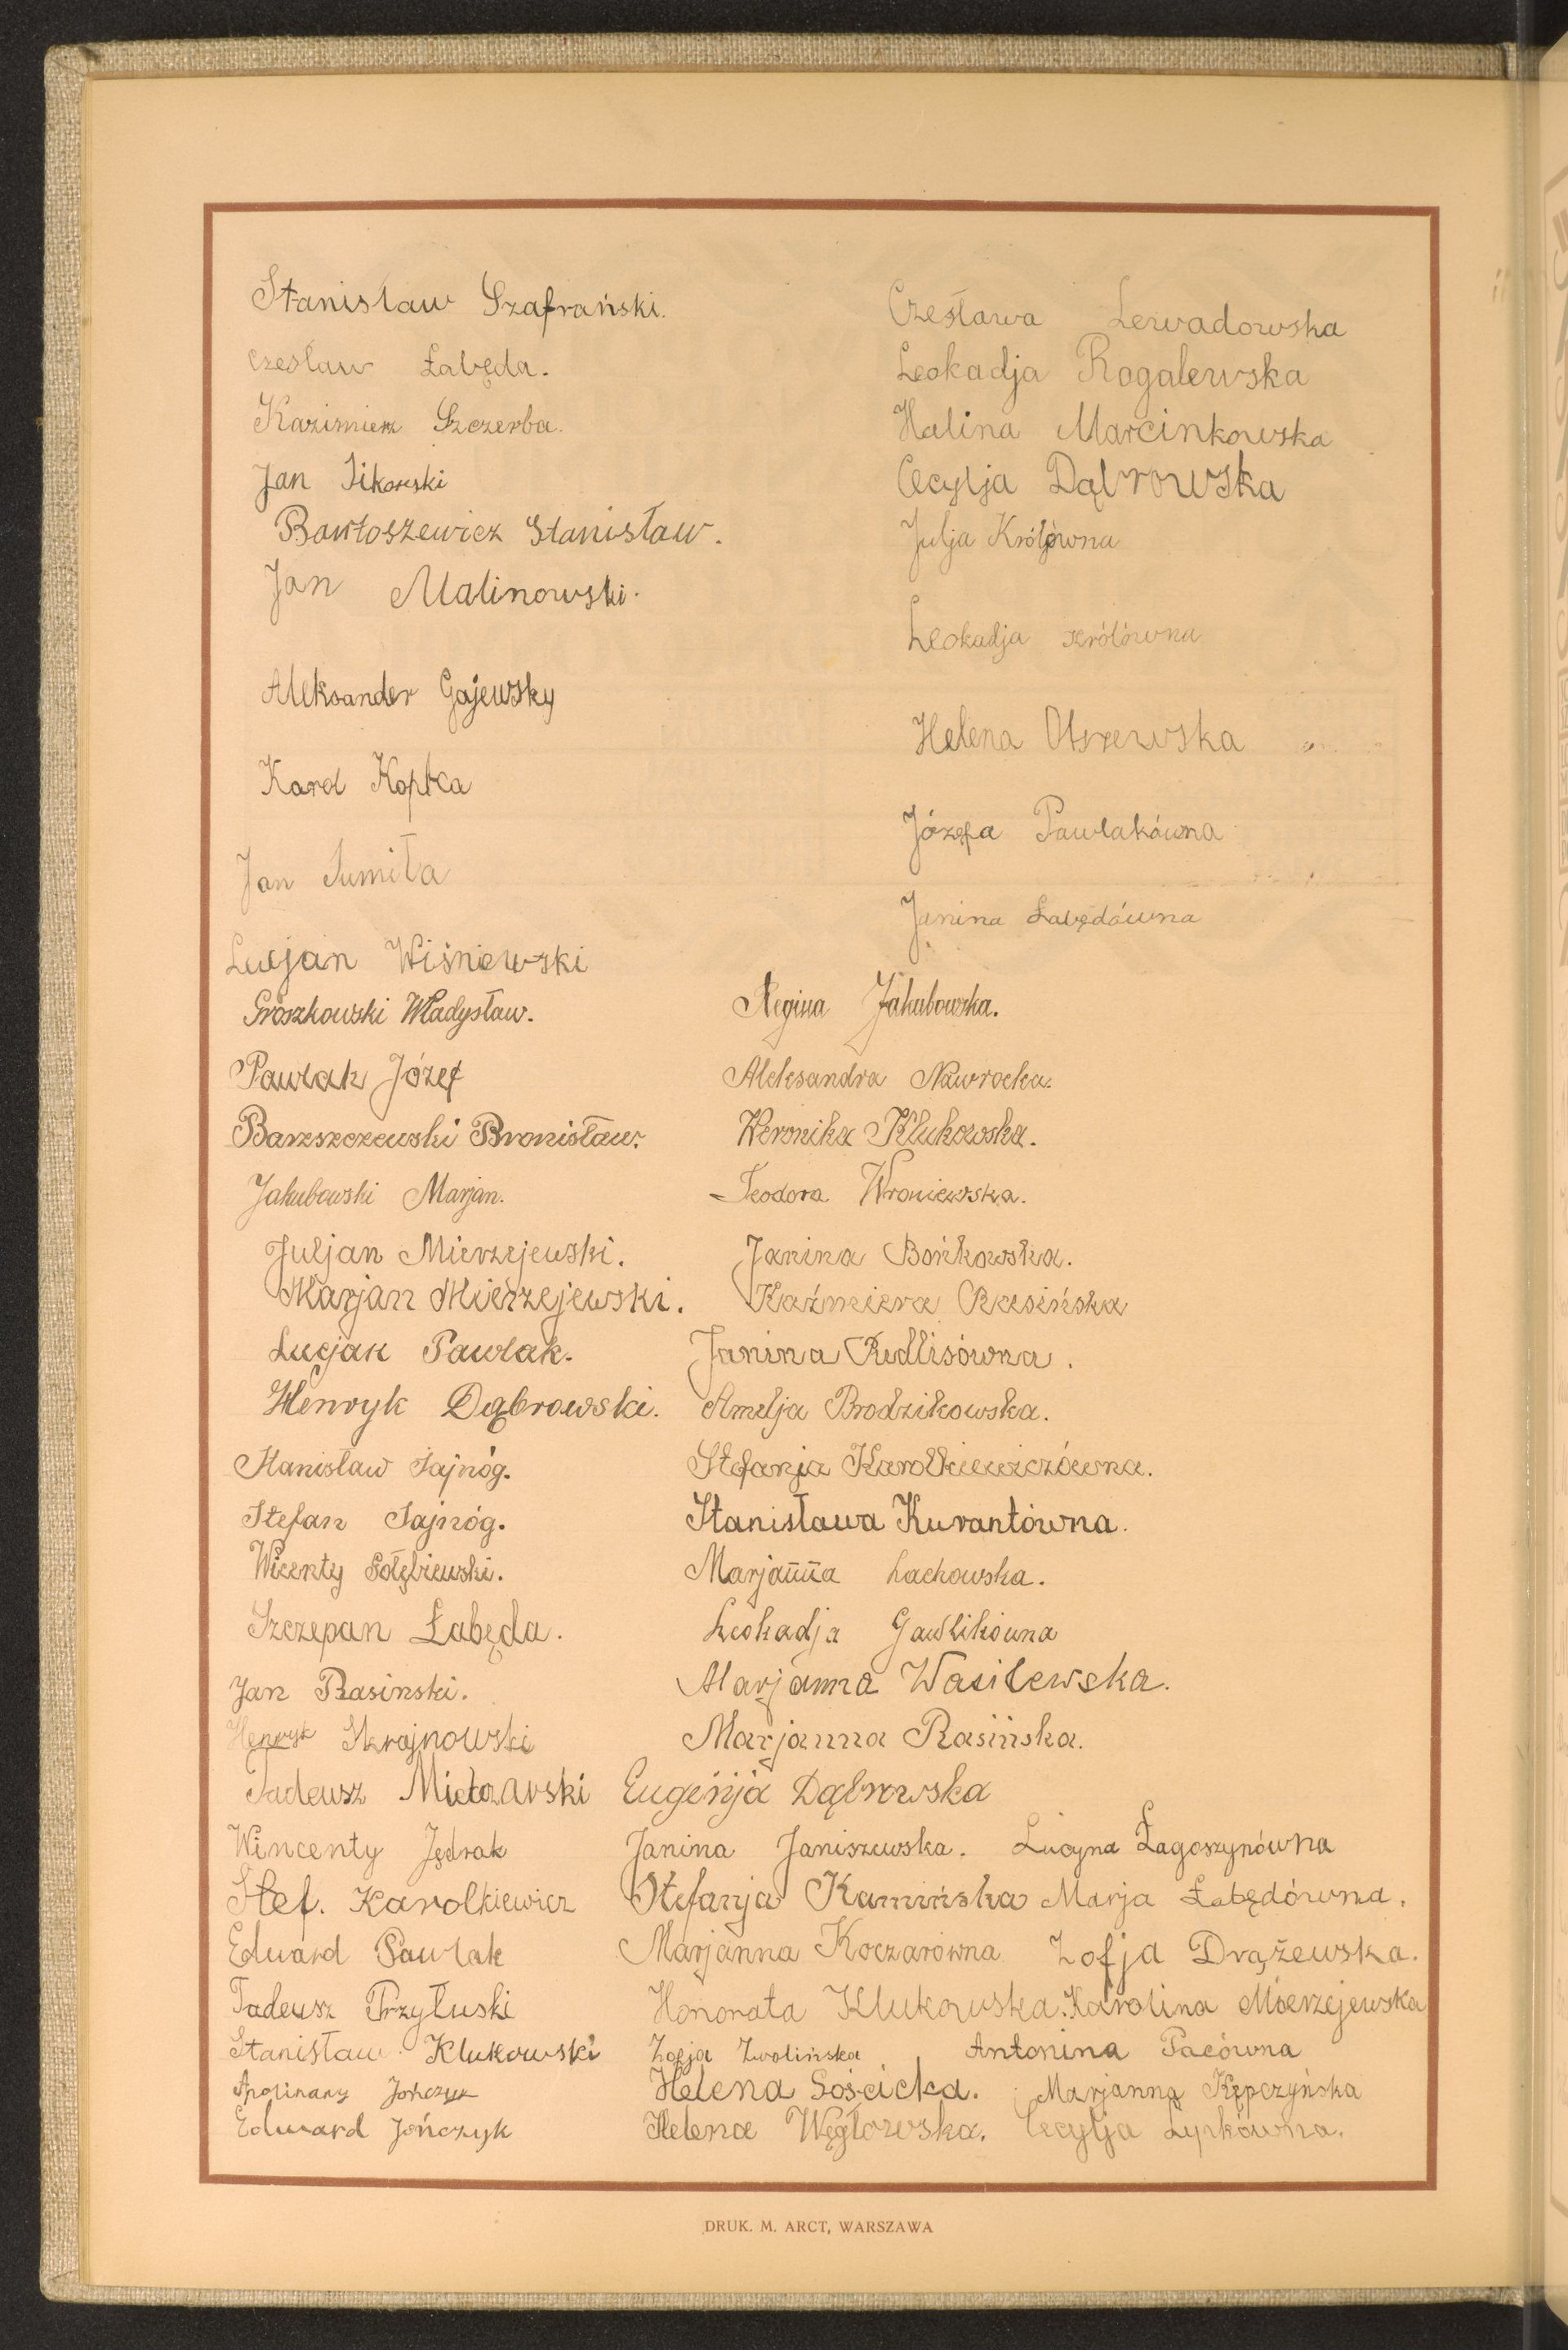 Stanisław Szafrański.
Czesław Łabęda.
Kazimierz Szczerba.
Jan Sikorski
Bartoszewicz Stanisław.
Jan Malinowski.
Aleksander Gajewsky
Karol Kopka
Jan Sumiła
Lucjan Wiśniewski
Groszkowski Władysław.
Pawlak Józef
Barzszczewski Bronisław.
Jakubowski Marjan.
Juljan Mierzejewski.
Marjan Mierzejewski.
Lucjan Pawlak.
Henryk Dąbrowski.
Stanisław Sajnóg.
Stefan Sajnóg.
Wicenty Gołębiewski.
Szczepan Łabęda.
Jan Rasinski.
Henryk Skrajnowski
Tadeusz
Wincenty Jędrak
Stef. Karolkiewicz
Edward Pawlak
Tadeusz Przyłuski
Stanisław Klukowski
Apolinary Jończyk
Edward Jończyk
Czesława Lewadowska
Leokadja Rogalewska
Halina Marcinkowska
Cecylja Dąbrowska
Julja Królówna
Leokadja Królówna
Helena Olszewska
Józefa Pawlakówna
Janina Łabędówna
Regina Jakubowska.
Aleksandra Nawrocka.
Weronika Klukowska.
Teodora Wroniewska.
Janina Bońkowska.
Kaźmiera Rasińska
Janina Redlisówna.
Amelja Brodzikowska.
Stefanja Karolkiewiczówna.
Stanisława Kurantówna.
Marjanna Lackowska.
Leokadja Gawlikówna
Marjanna Wasilewska.
Marjanna Rasińska.
Eugenja Dąbrowska
Janina Janiszewska. Lucyna Łagoszynówna
Stefanja Kamińska Marja Łabędówna.
Marjanna Koczarówna Zofja Drążewska.
Honorata Klukowska. Karolina Mierzejewska
Zofja Zwolińska Antonina Pacówna
Helena Gościcka. Marjanna Kępczyńska
Helena Węgłowska. Cecylja Łypkówna.
DRUK. M. ARCT, WARSZAWA